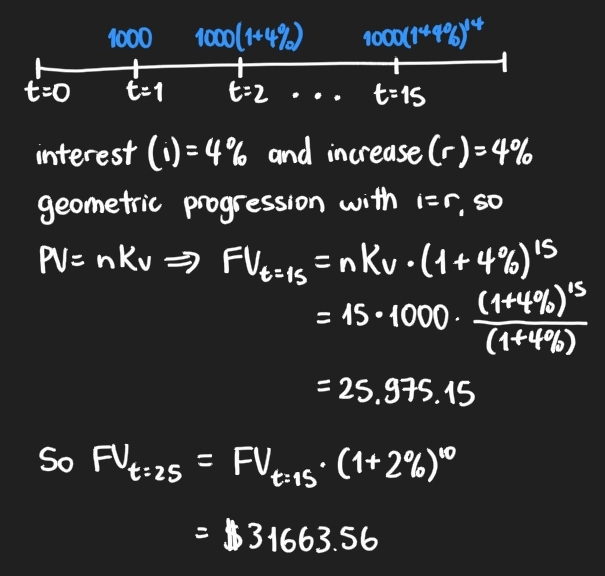 1000 1000(1+4%) 1000(1+4%)¹⁴
t=0 t=1 t=2 ... t=15
interest (i)=4% and increase (r)=4%
geometric progression with i=r, so
PV= nKv ⇒ FV_{t=15} = nKv·(1+4%)¹⁵
= 15·1000· (1+4%)¹⁵/(1+4%)
= 25.975.15
So FV_{t=25} = FV_{t=15}·(1+2%)¹⁰
= $31663.56